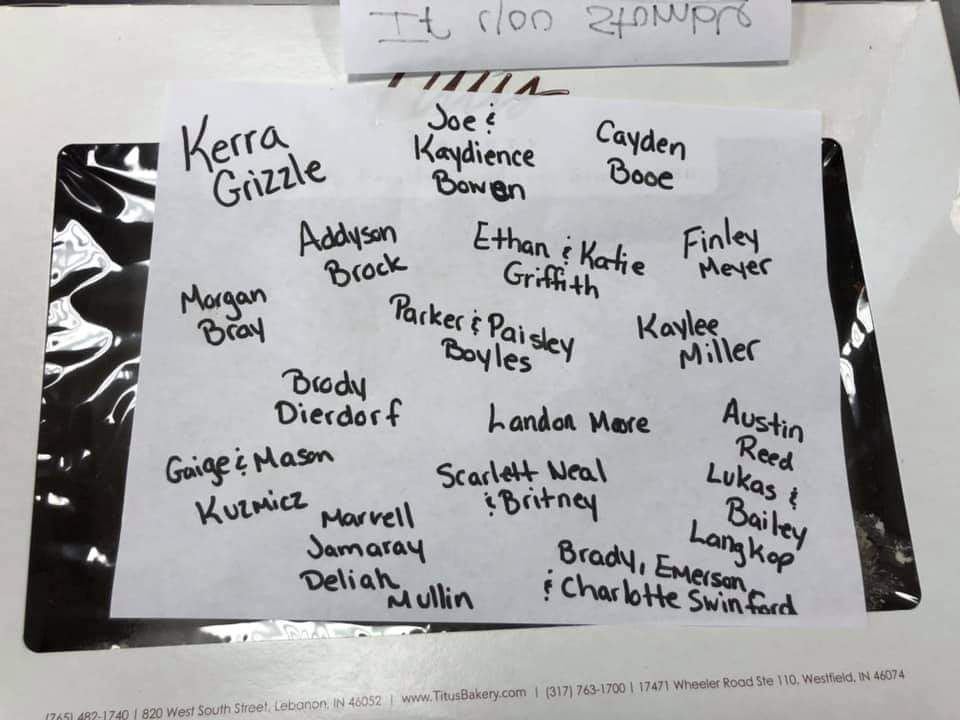 If you stumble
Kerra
Grizzle
Joe &
Kaydience
Bowen
Cayden
Booe
Addyson
Brock
Ethan & Katie
Griffith
Finley
Meyer
Morgan
Bray
Parker & Paisley
Boyles
Kaylee
Miller
Brody
Dierdorf
Landon Moore
Austin
Reed
Gaige & Mason
Kuzmicz
Scarlett Neal
& Britney
Lukas &
Bailey
Langkop
Marvell
Jamaray
Deliah
Mullin
Brady, Emerson
& Charlotte Swinford
(765) 482-1740 | 820 West South Street, Lebanon, IN 46052 | www.TitusBakery.com | (317) 763-1700 | 17471 Wheeler Road Ste 110, Westfield, IN 46074